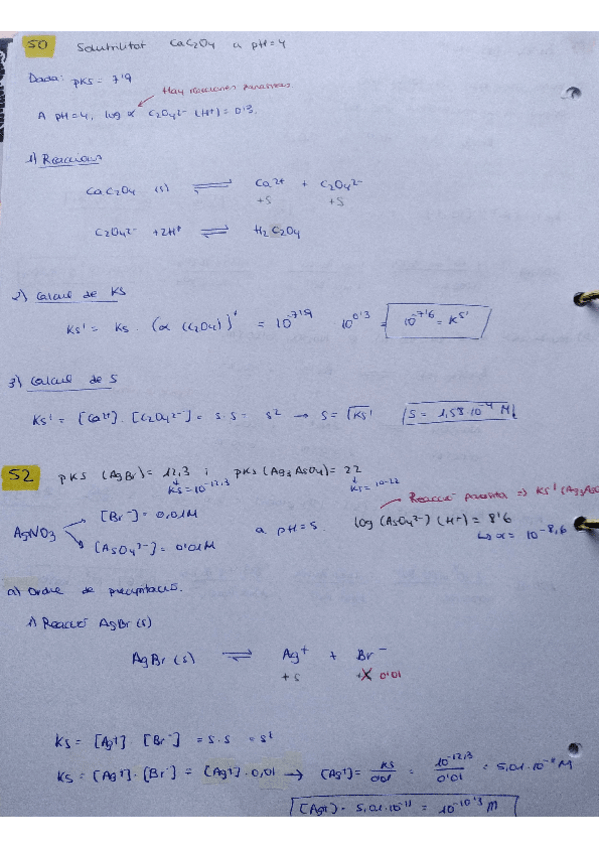 50 Solubilitat CaC2O4 a pH=4
Dada: pKS = 7'9
Hay reacciones parasitas.
A pH=4, log α C2O4²⁻ (H⁺) = 0'3.
1) Reaccions
CaC2O4 (s) ⇌ Ca²⁺ + C2O4²⁻
+S +S
C2O4²⁻ + 2H⁺ ⇌ H2C2O4
2) Calcul de KS
KS' = KS · (α (C2O4))' = 10^-7'9 10^0'3 = 10^-7'6 = KS'
3) Calcul de S
KS' = [Ca²⁺] · [C2O4²⁻] = S · S = S² → S = √KS' S = 1,58·10⁻⁴ M
52 pKS (AgBr) = 12,3 i pKS (Ag3AsO4) = 22
KS = 10^-12,3 KS = 10^-22
Reacció parasita => KS' (Ag3AsO
AgNO3 [Br⁻] = 0,01M a pH=5. log (AsO4³⁻) (H⁺) = 8'6
[AsO4³⁻] = 0'01M ↳ α = 10^-8,6
a) Ordre de precipitació.
1) Reacció AgBr (s)
AgBr (s) ⇌ Ag⁺ + Br⁻
+S +X 0'01
KS = [Ag⁺] · [Br⁻] = S · S = S²
KS = [Ag⁺] · [Br⁻] = [Ag⁺] · 0,01 → [Ag⁺] = KS/0'01 = 10^-12,3/0'01 = 5,01·10⁻¹¹ M
[Ag⁺] = 5,01·10⁻¹¹ = 10^-10'3 M